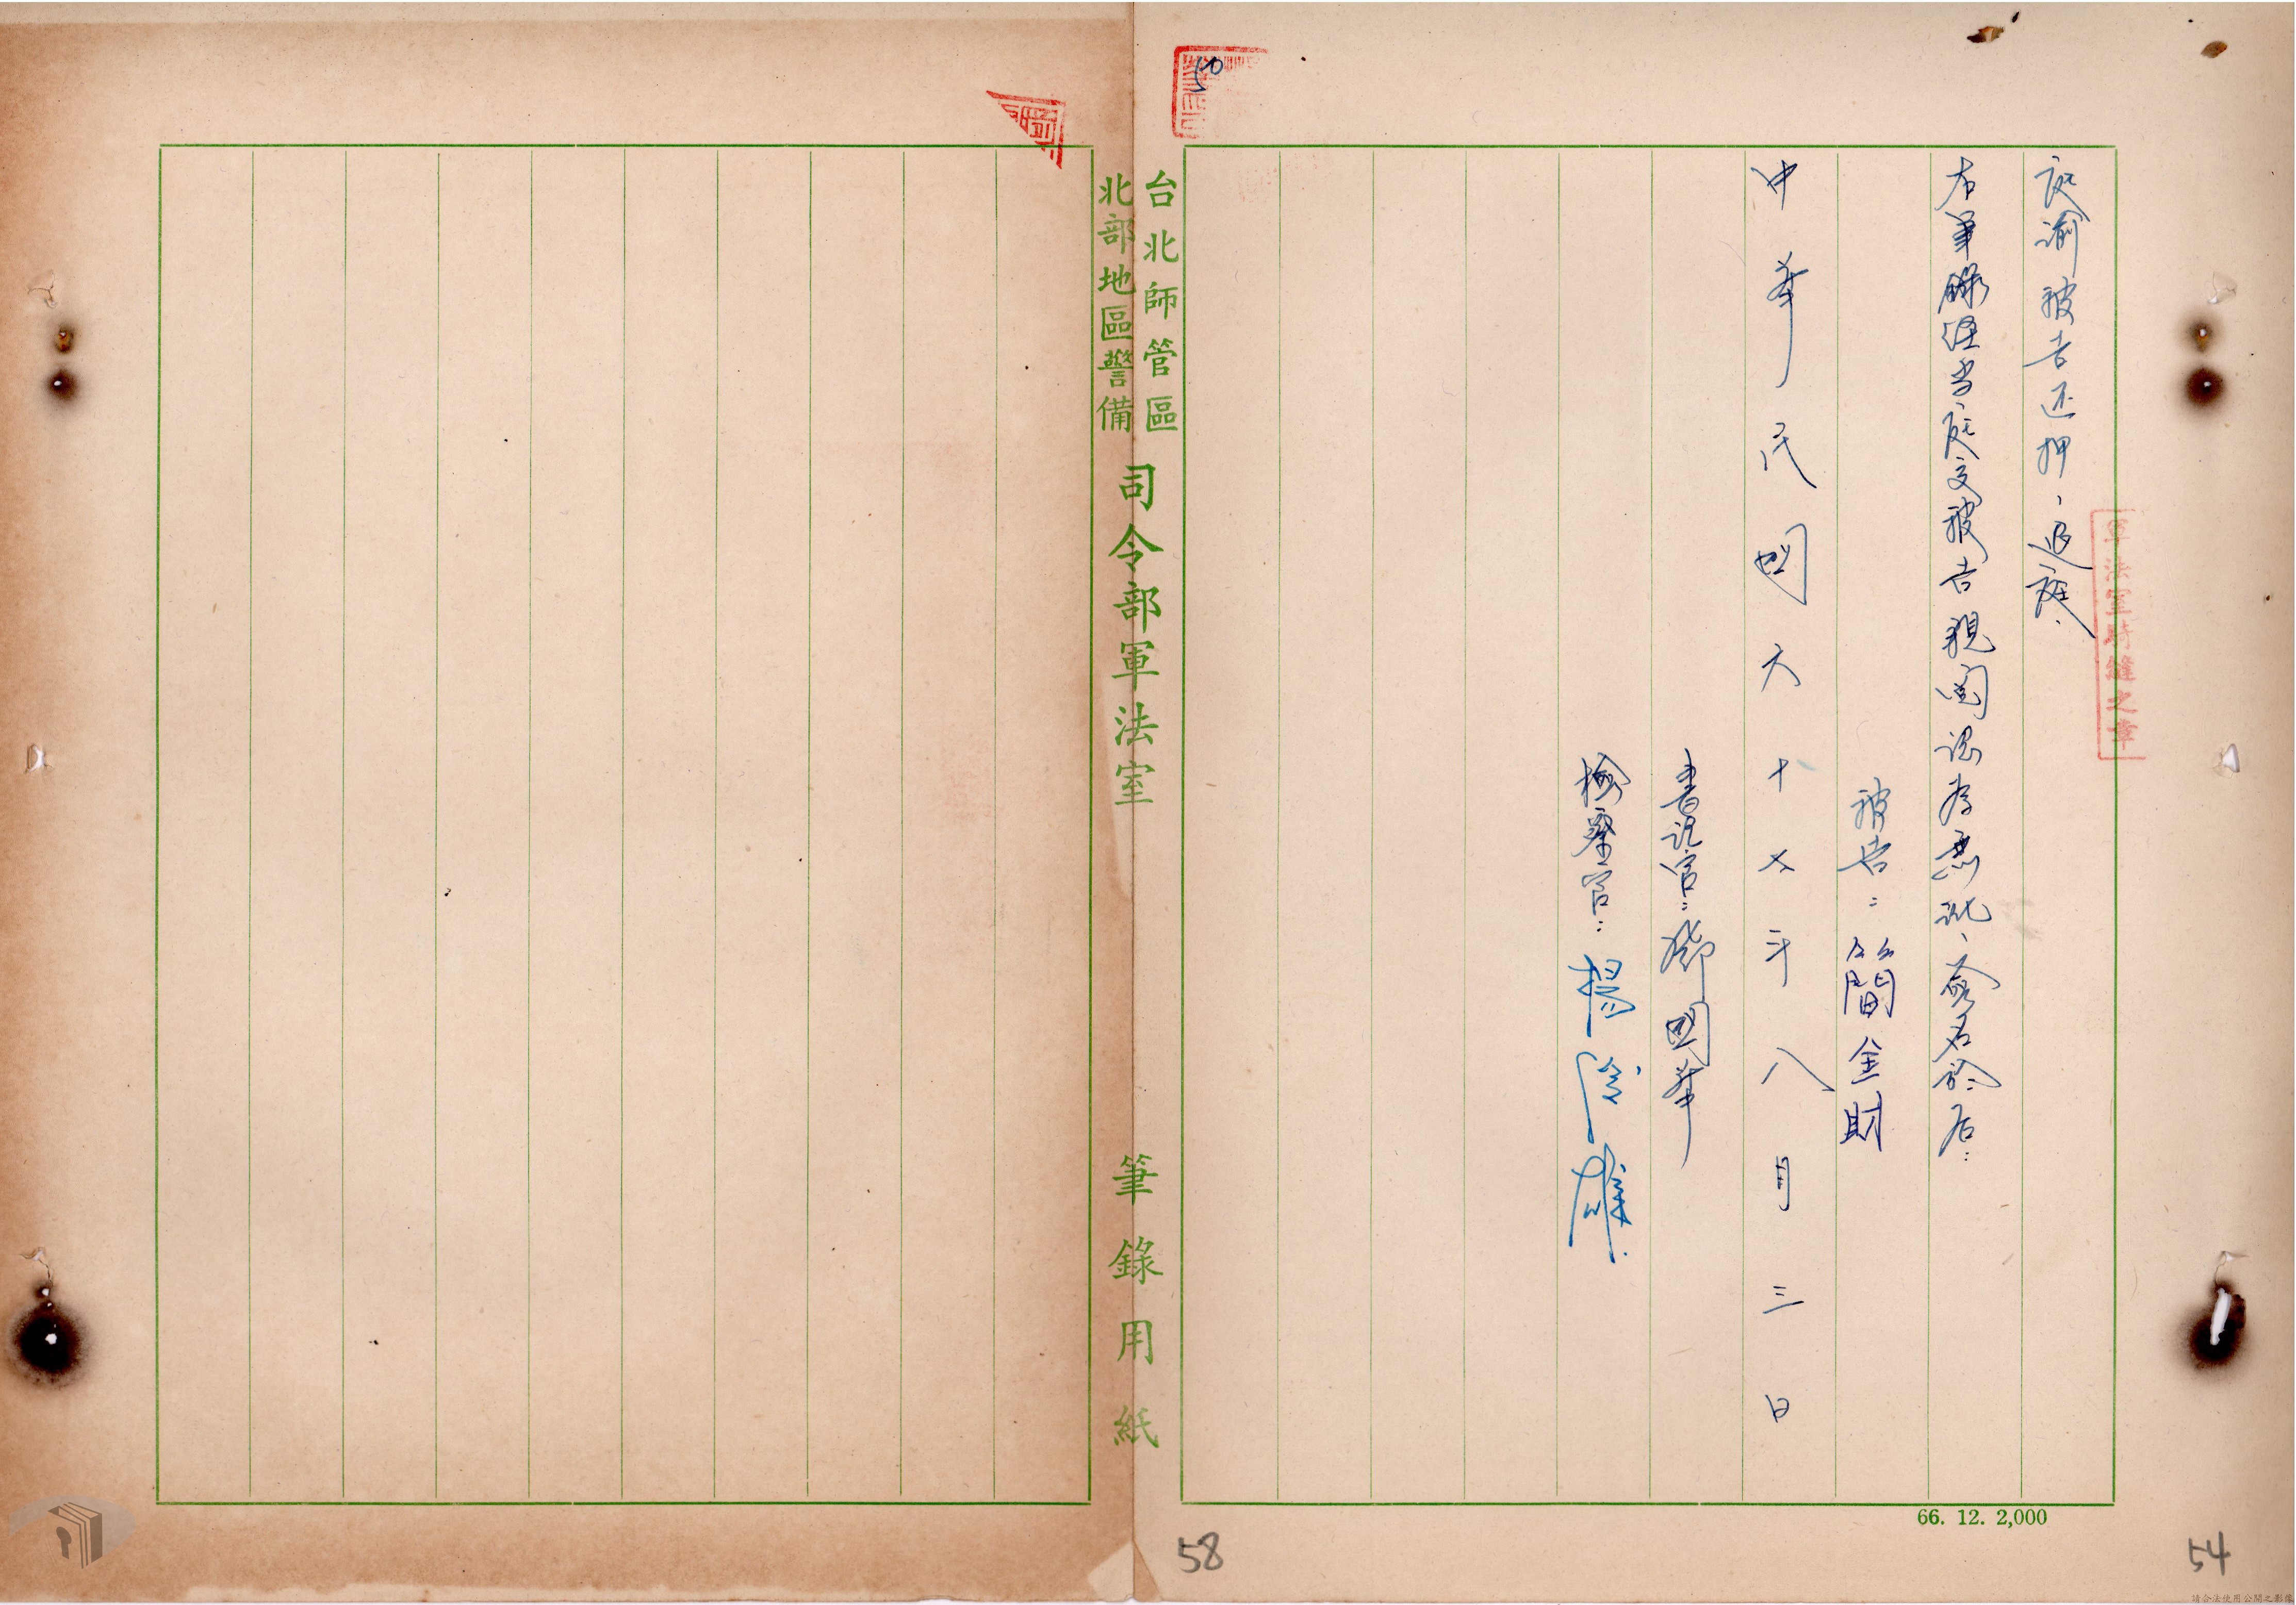 庭諭被告还押、退庭.
右筆錄經当庭交被告親閱認為無訛、簽名於后:
被告: 簡金財
中華民國六十七年八月三日
書記官: 鄧國華
檢察官: 楊
軍法室騎縫之章
50
台北師管區
北部地區警備
司令部軍法室 筆錄用紙
66. 12. 2,000
58
54
請合法使用公開之影像